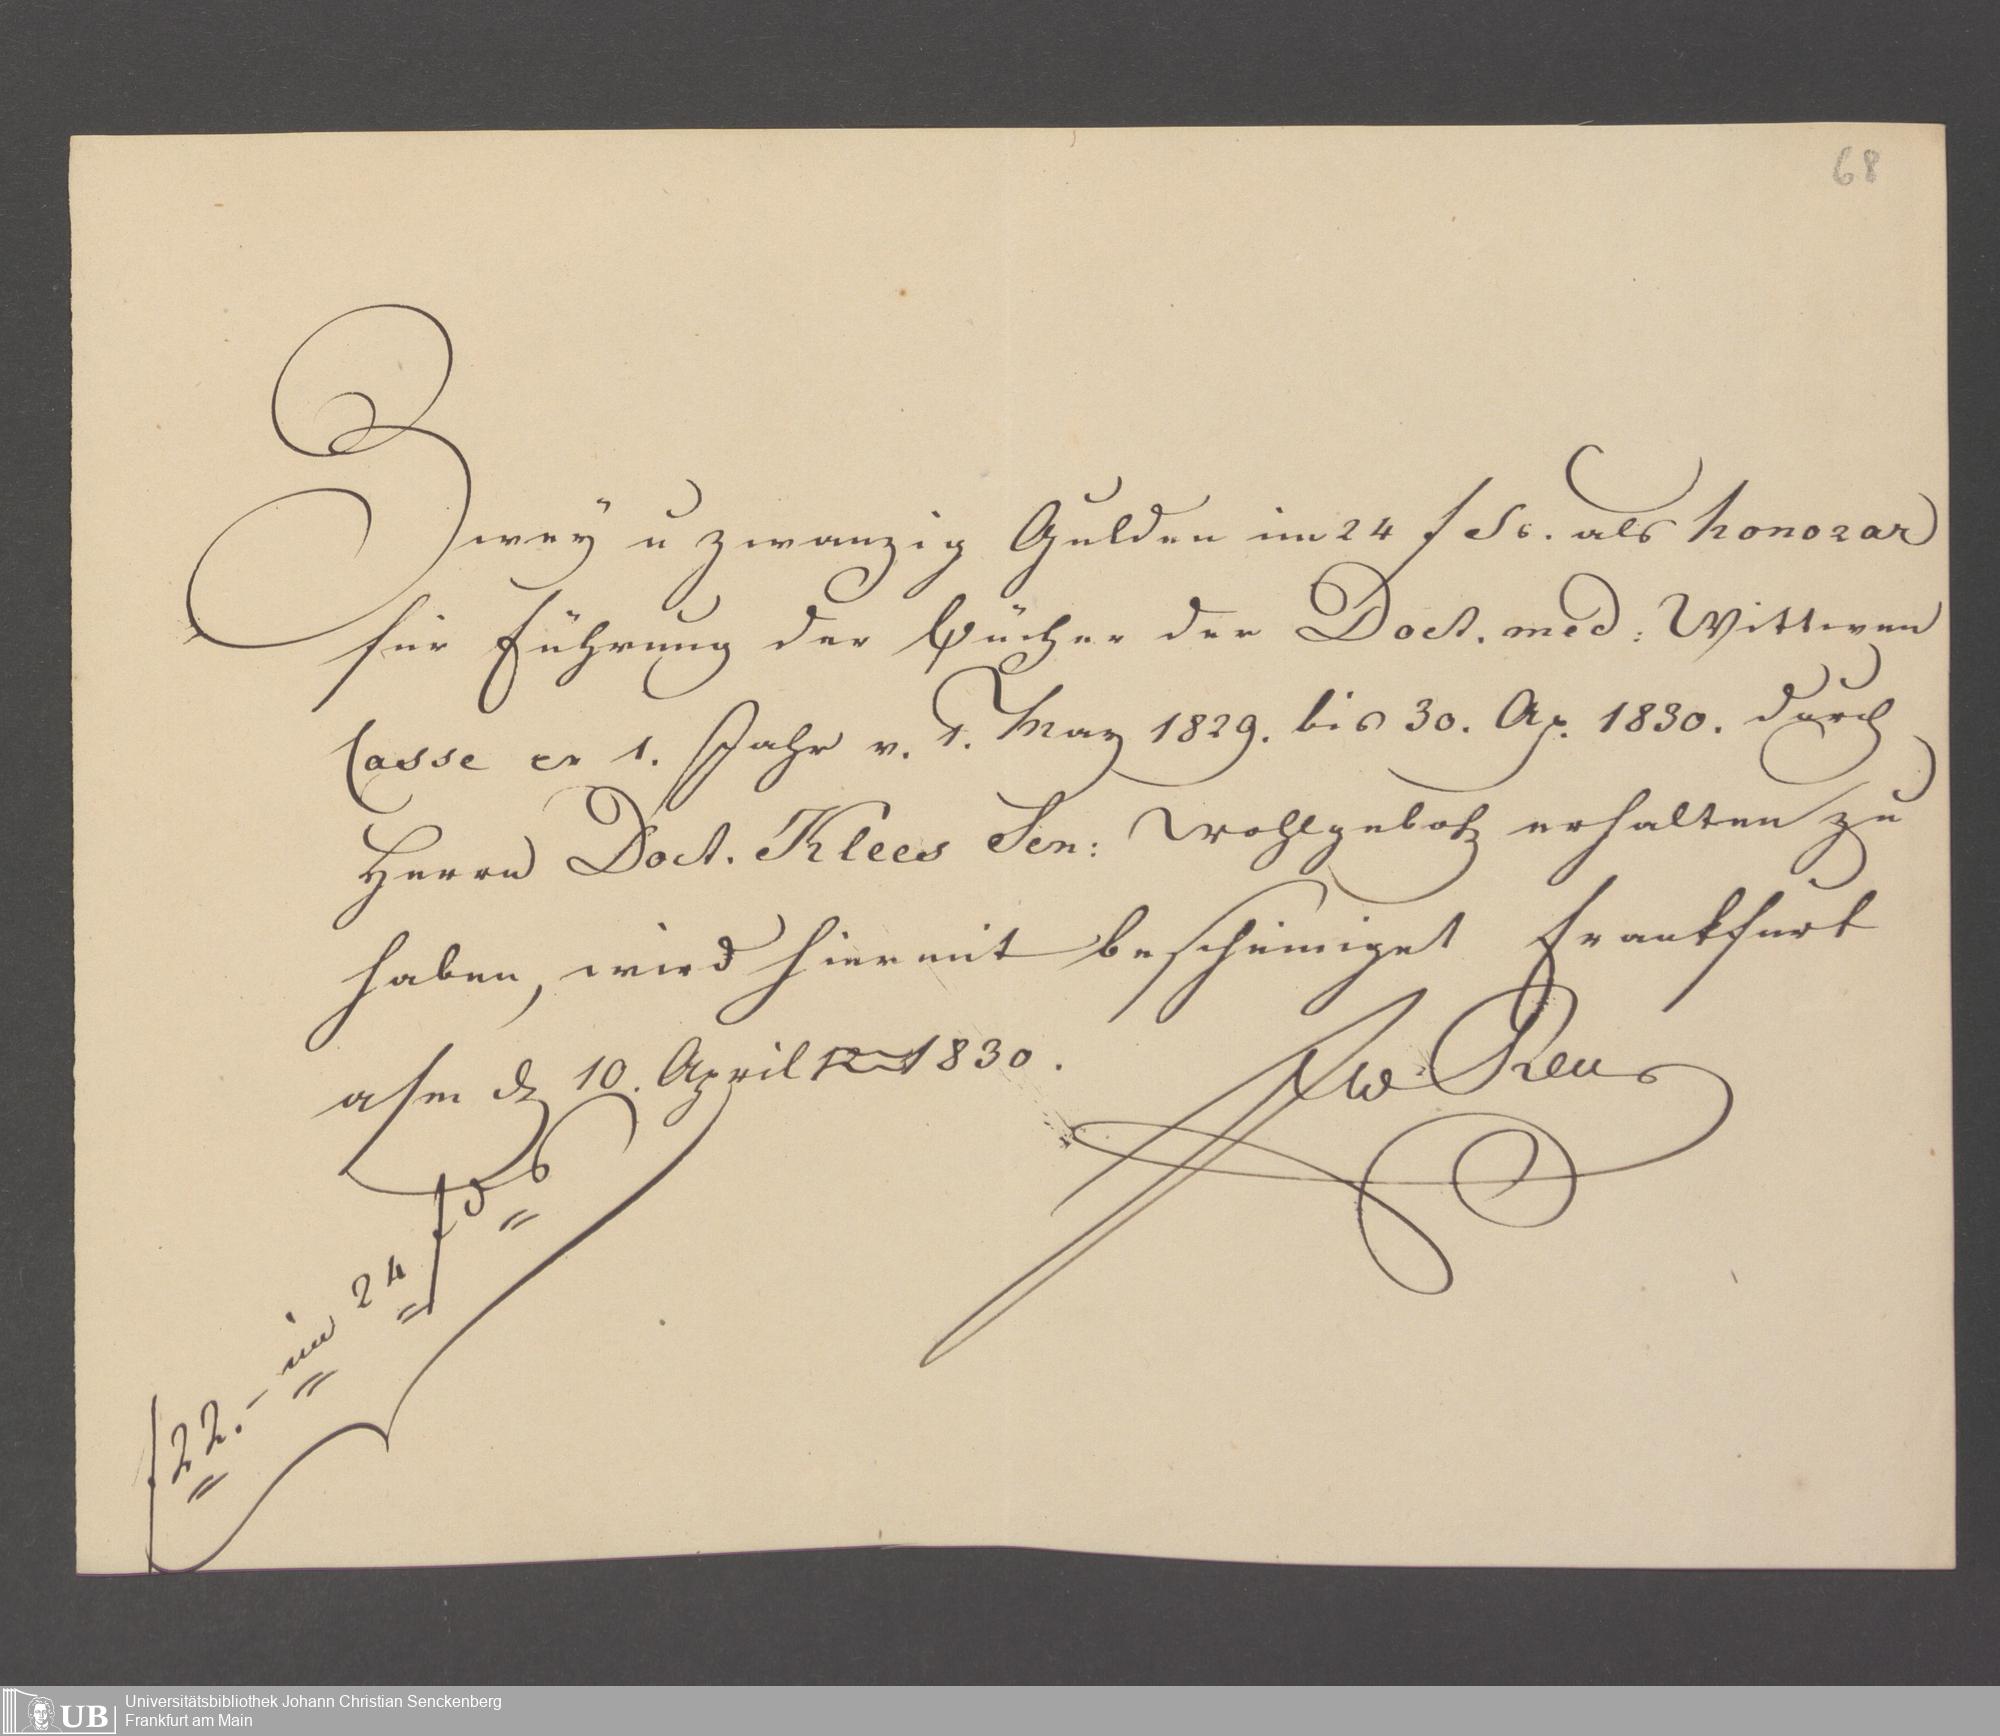 68
Zwey u zwanzig Gulden im 24 f ds. als honorar
für Führung der Bücher der Doct. med: Wittwen
Casse er 1. Jahr v. 1. May 1829. bis 30. Ap. 1830. durch
Herrn Doct. Klees Sen: Wohlgeb erhalten zu
haben, wird hiermit bescheiniget Frankfurt
a/m d 10. April 1830.
Fw Reus
f 22.- im 24 f ds
UB
Universitätsbibliothek Johann Christian Senckenberg
Frankfurt am Main